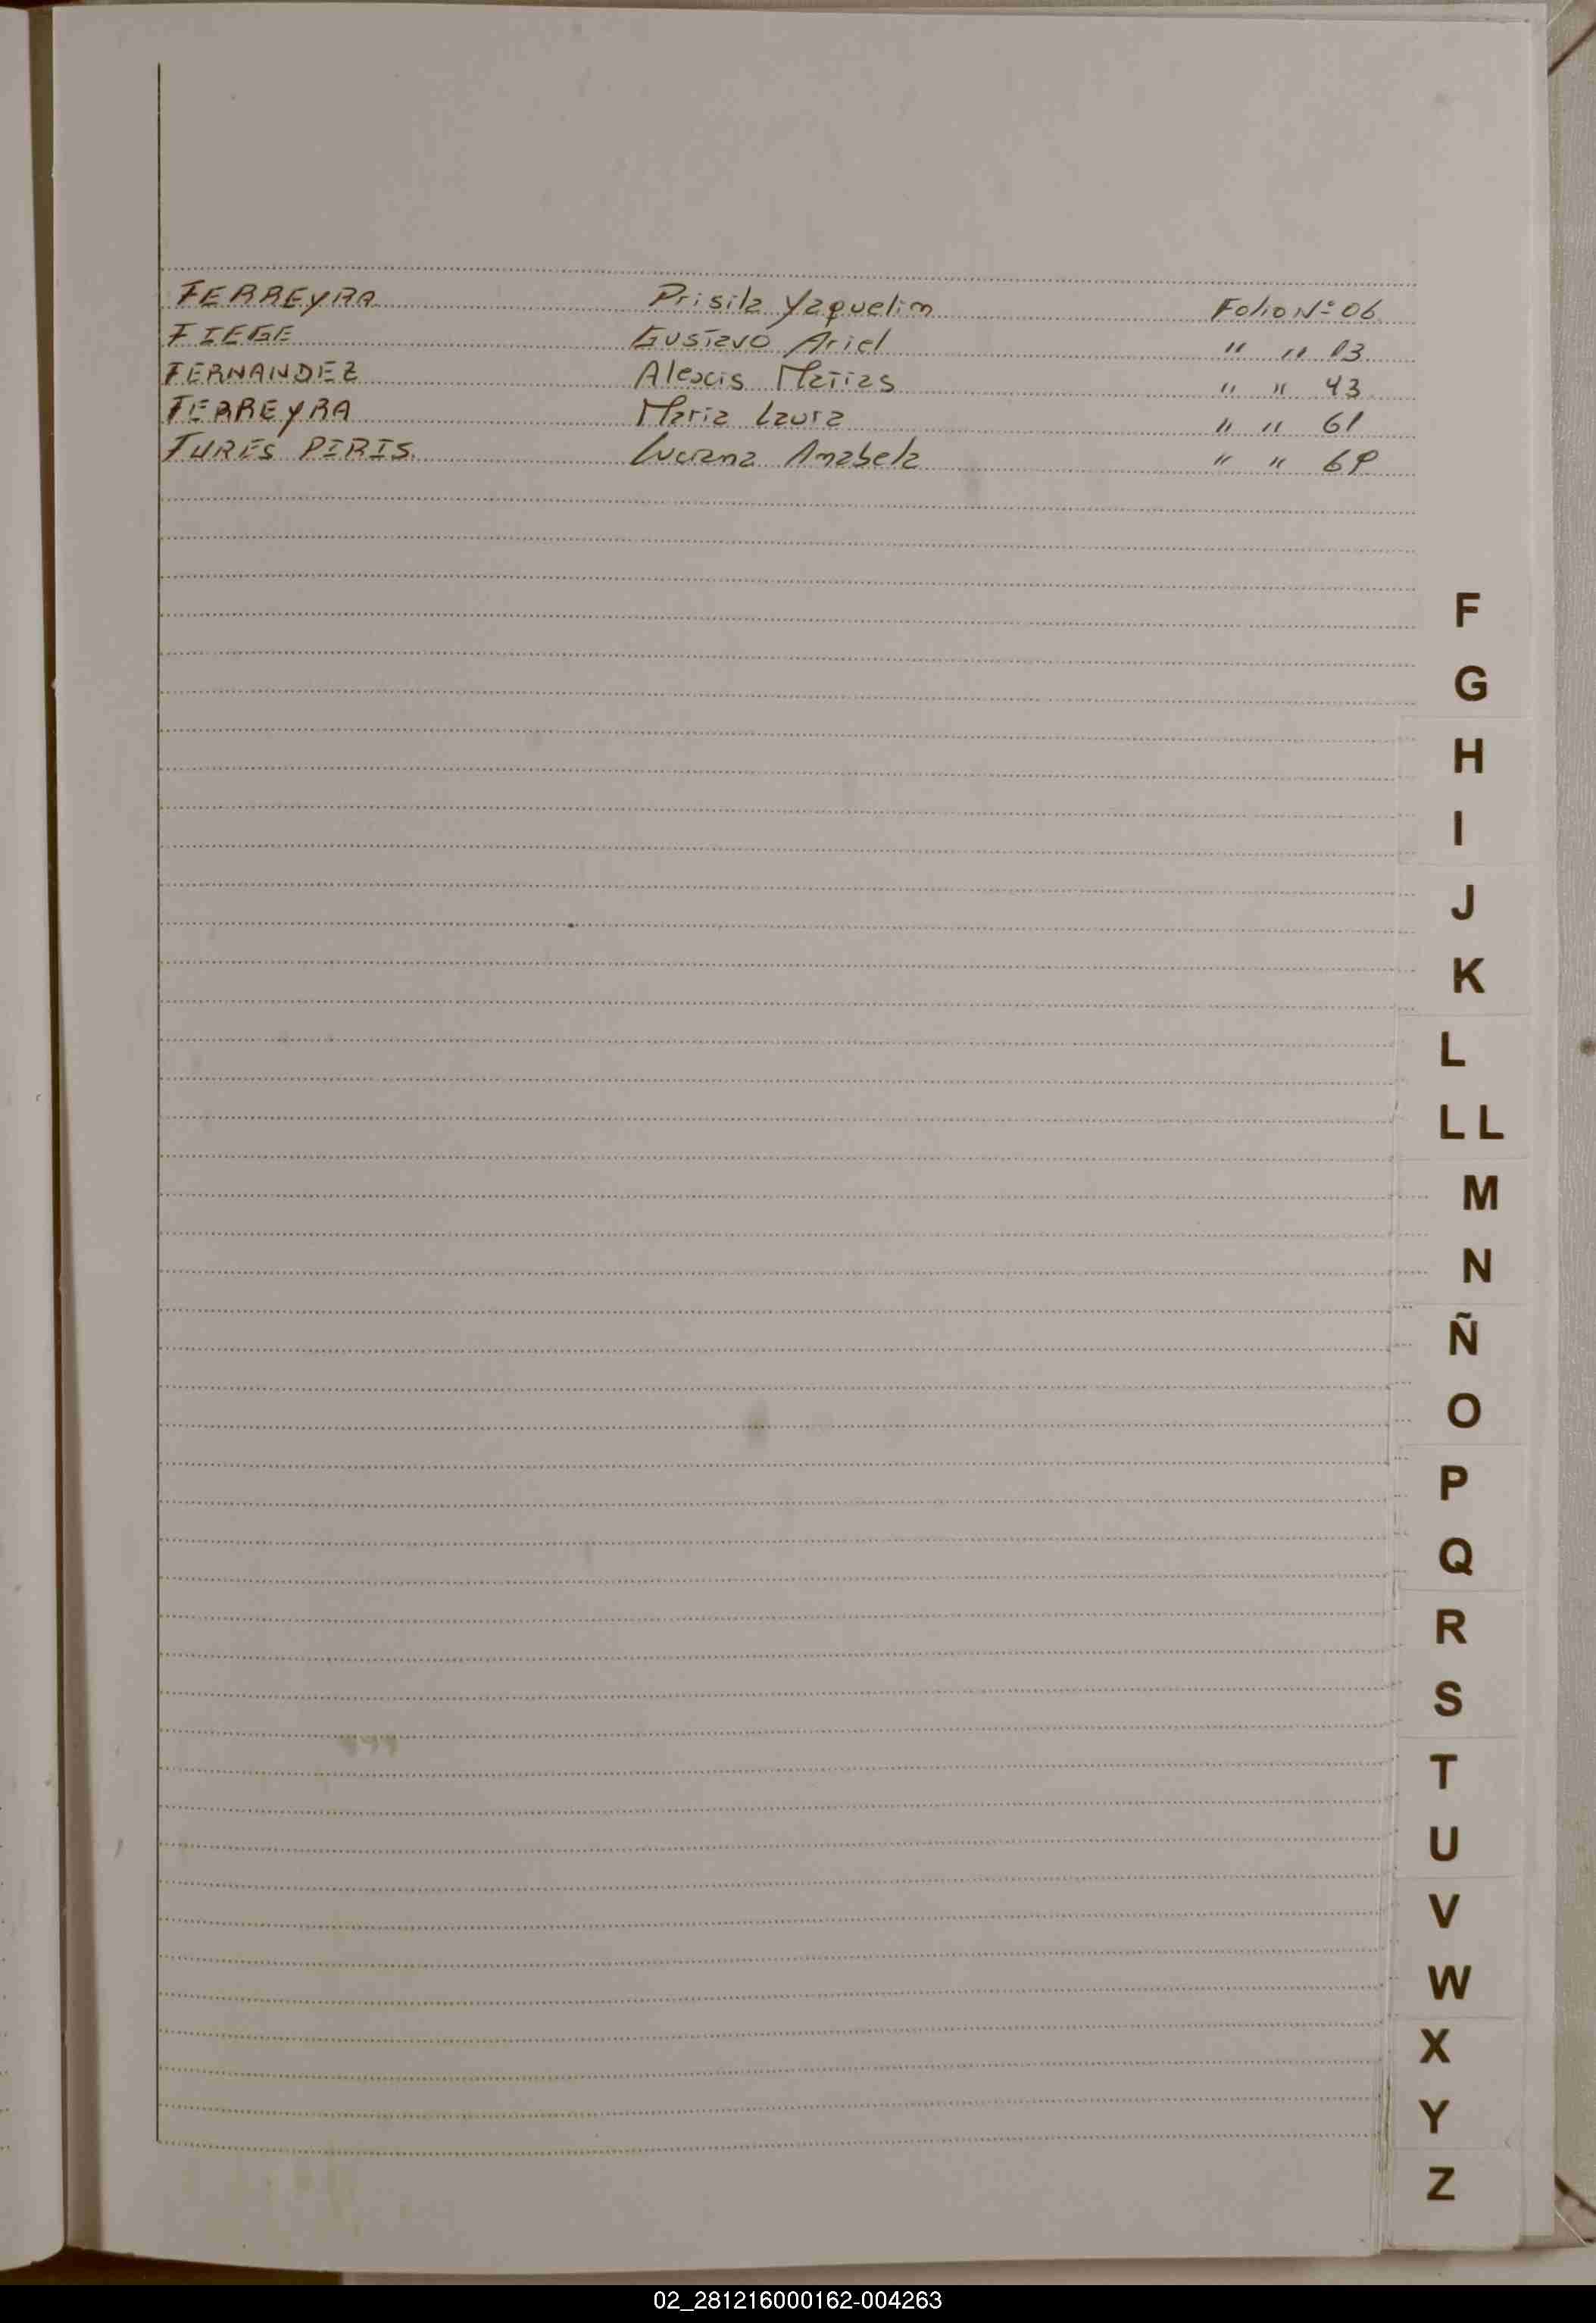 FERREYRA Prisila Yaquelin Folio Nº 06
FIEGE Gustavo Ariel " " 13
FERNANDEZ Alexcis Matias " " 43
FERREYRA Maria Laura " " 61
FURES PIRIS Luciana Anabela " "
F
G
H
I
J
K
L
LL
M
N
Ñ
O
P
Q
R
S
T
U
V
W
X
Y
Z
02_281216000162-004263